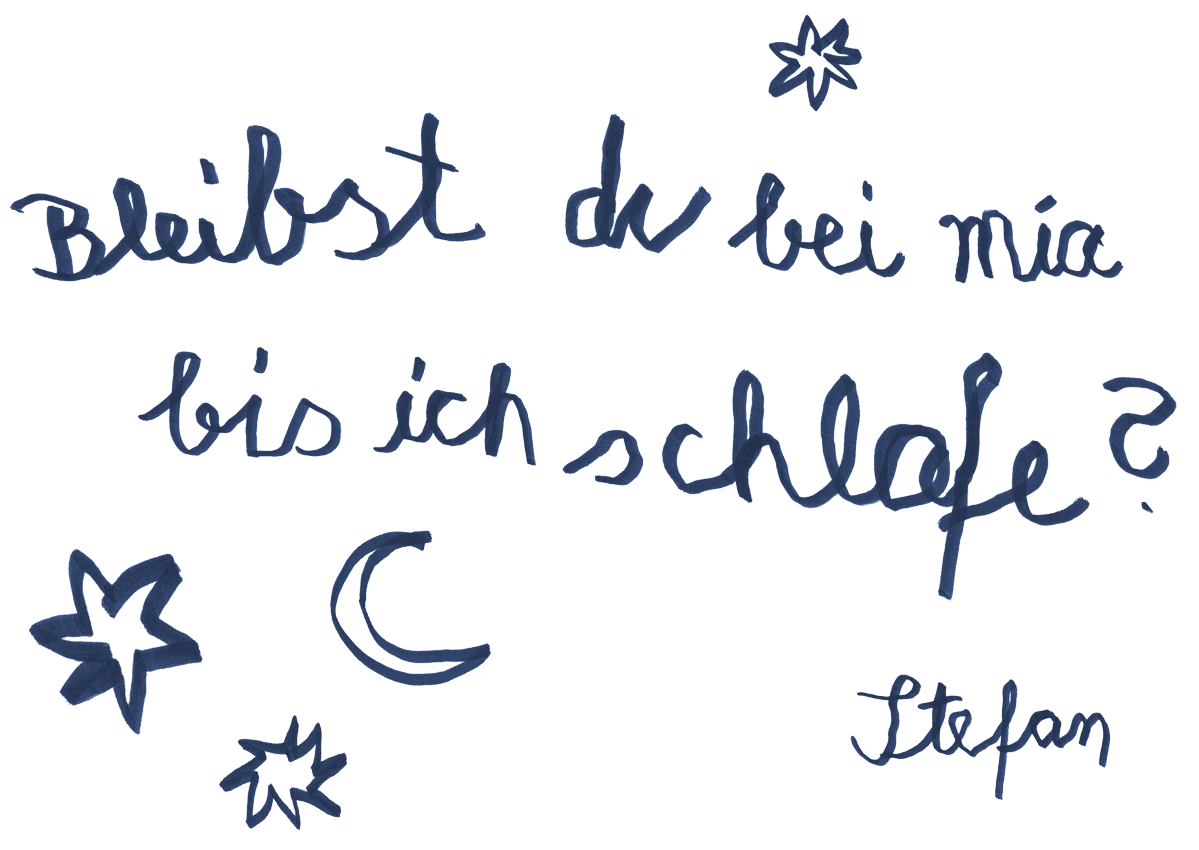 Bleibst du bei mia
bis ich schlafe?
Stefan